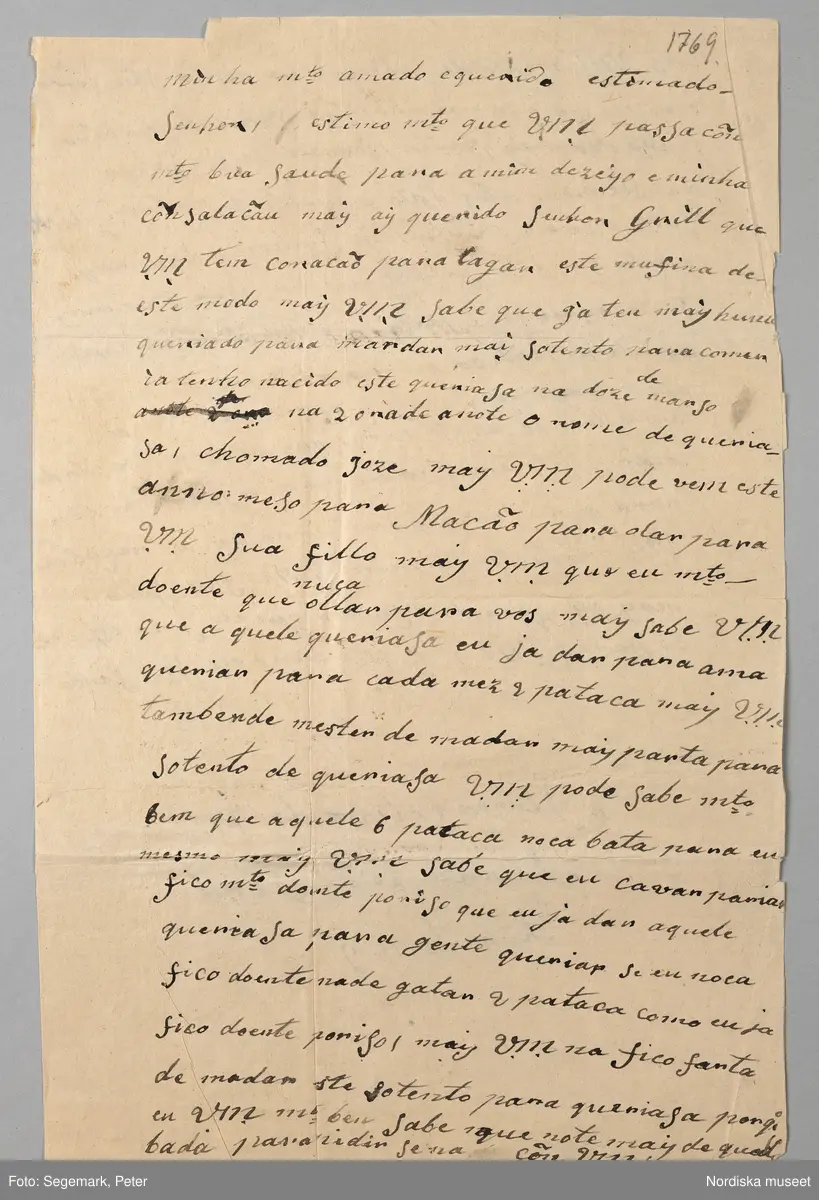 1769
minha mto amado equerido estimado
Senhor, estimo mto que VM passa cõn
mto boa saude para amim dezejo e minha
cõnsalacãu may ay querido Senhor Grill que
VM tem coracaõ para lagar este mufina de-
este modo may VM sabe que ja teu may hunu
queriado para mandar mai sotento para comer
ia tenho nacido este queriasa na doze de marso
na 2 ora de anote o nome de queria-
sa, chomado joze may VM pode vem este
anno meso para Macão para olar para
VM sua fillo may VM que eu mto-
doente que nuca ollar para vos may sabe VM
que a quele queriasa eu ja dar para ama
queriar para cada mez 2 pataca may VM
tambende mester de madar may parta para
sotento de queriasa VM pode sabe mto
bem que aquele 6 pataca noca bata para eu
mesmo may VM sabe que eu cavar pariar
fico mto doente poriso que eu ja dar aquele
queriasa para gente queriar se eu noca
fico doente nade gatar 2 pataca como eu ja
fico doente poriso, may VM na fico farta
de madar ste sotento para queriasa porq̃
eu VM mto ben sabe que note may de
bada para ridir se na cõn VM
Foto: Segemark, Peter
Nordiska museet